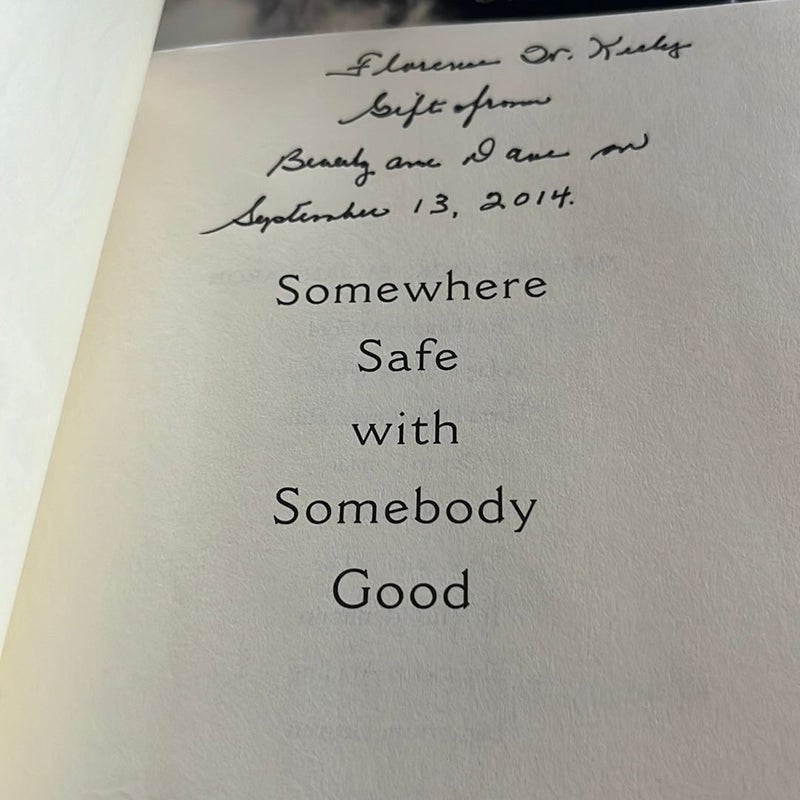 Florence W. Keely
Gift from
Beverly and Dave on
September 13, 2014.
Somewhere
Safe
with
Somebody
Good